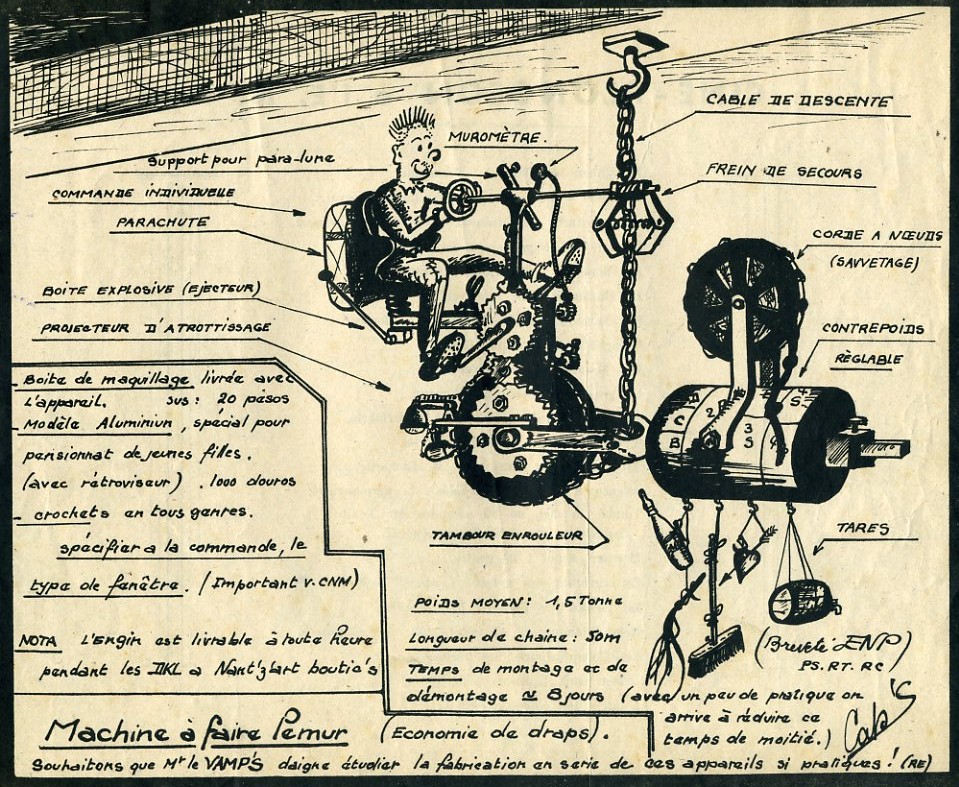 CABLE DE DESCENTE
MUROMÈTRE.
Support pour para-lune
FREIN DE SECOURS
COMMANDE INDIVIDUELLE
PARACHUTE
CORDE A NŒUDS
(SAUVETAGE)
BOITE EXPLOSIVE (EJECTEUR)
PROJECTEUR D'ATROTTISSAGE
CONTREPOIDS
RÈGLABLE
Boite de maquillage livrée avec
L'appareil. sus : 20 pésos
Modèle Aluminiun, spécial pour
pensionnat de jeunes filles.
(avec rétroviseur) . 1000 douros
crochets en tous genres.
spécifier a la commande, le
type de fenêtre. (Important v. CNM)
C 2
B 3
S
4
S
TAMBOUR ENROULEUR
TARES
POIDS MOYEN : 1,5 Tonne
Longueur de chaine : 50m
TEMPS de montage et de
démontage ~ 8 jours (avec un peu de pratique on
arrive à réduire ce
temps de moitié.)
(Breveté ENP)
PS. RT. RC
NOTA L'engin est livrable à toute heure
pendant les DKL a Nant'z'art boutic's
Machine à faire Pemur (Economie de draps).
Souhaitons que Mr le VAMP'S daigne étudier la fabrication en serie de ces appareils si pratiques ! (RE)